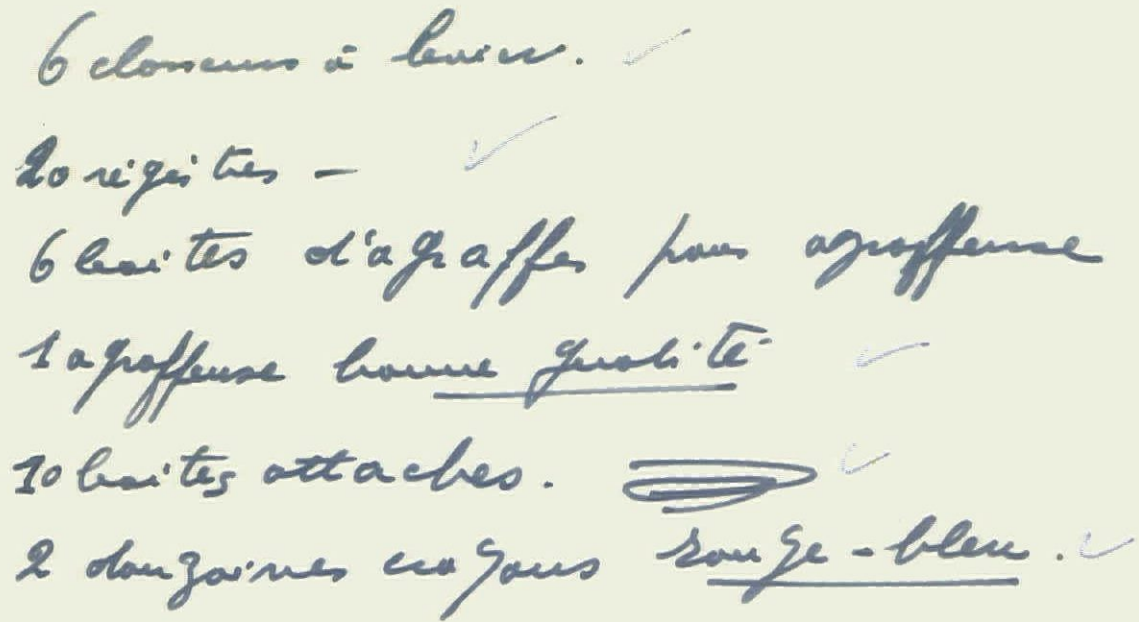 6 classeurs à levier.
20 régistres -
6 boites d'agraffes pour agraffeuse
1 agraffeuse bonne qualité
10 boites attaches.
2 douzaines crayons rouge-bleu.